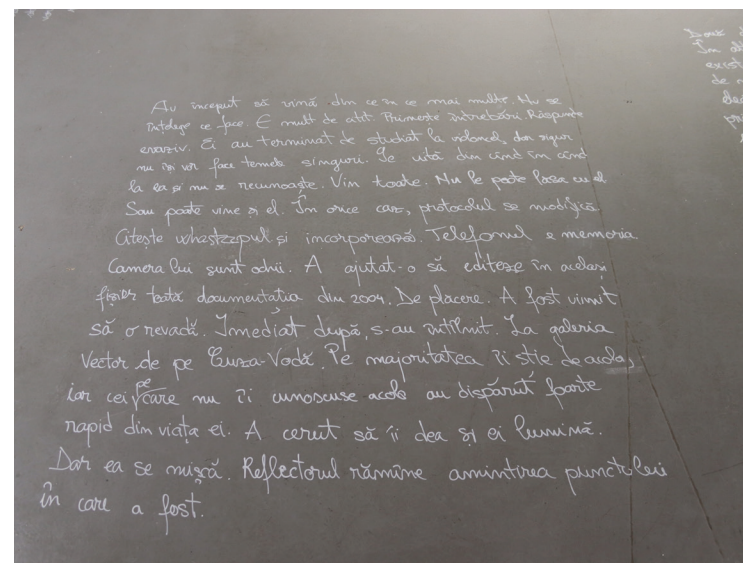 Au început să vină din ce în ce mai multe. Nu se
înțelege ce face. E mult de atît. Primește întrebări. Răspunde
evaziv. Ei au terminat de studiat la violoncel, dar sigur
nu își vor face temele singuri. Se uită din cînd în cînd
la ea și nu se recunoaște. Vin toate. Nu le poate lăsa cu el
Sau poate vine și el. În orice caz, protocolul se modifică.
Citește whatsappul și incorporează. Telefonul e memoria
Camera lui sunt ochii. A ajutat-o să editeze în același
fișier toată documentatia din 2009. De placere. A fost uimit
să o revadă. Imediat după, s-au întîlnit. La galeria
Vector de pe Cuza-Vodă. Pe majoritatea îi știe de acolo,
iar cei pe care nu îi cunoscuse acolo au dispărut foarte
rapid din viața ei. A cerut să îi dea și ei lumină.
Dar ea se mișcă. Reflectorul rămîne amintirea punctului
în care a fost.
Două
În
exist
de